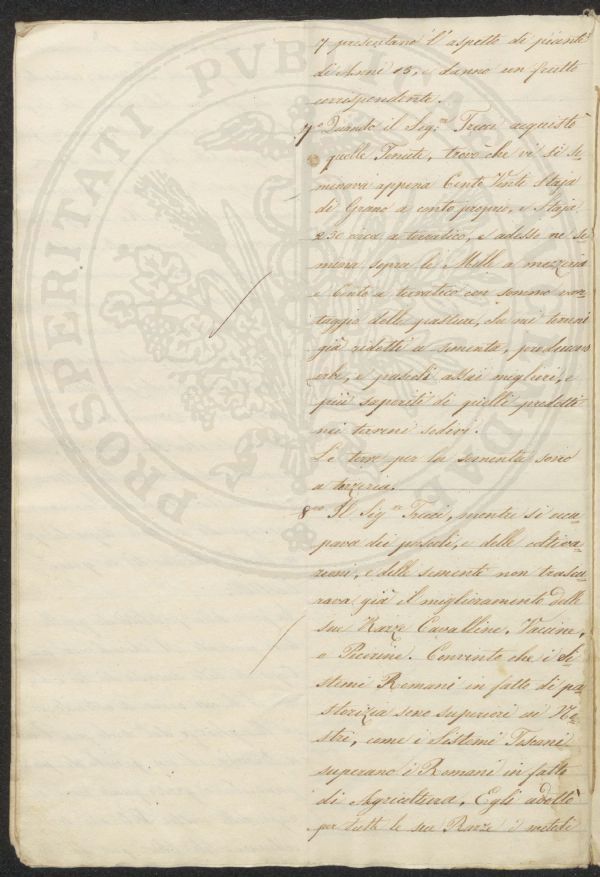 7 presentano l'aspetto di piante
di Anni 15, e danno un frutto
corrispondente.
7º Quando il Sigr Truci acquistò
quelle Tenute, trovò che vi si se-
minava appena Cento Venti Staja
di Grano a conto proprio, e Staja
230 circa a terratico, e adesso ne se-
mina sopra le Mille a mezzeria
e Cento a terratico con sommo van-
taggio delle pasture, che nei terreni
già ridotti a sementa, producono
erbe, e pascoli assai migliori, e
più saporiti di quelli prodotti
nei terreni sodivi.
Le terre per la sementa sono
a terzeria.
8vo Il Sigr Truci, mentre si occu-
pava dei pascoli, e delle coltiva-
zioni, e delle sementi non trascu-
rava già il miglioramento delle
sue Razze Cavalline, Vaccine,
e Pecorine. Convinto che i Si-
stemi Romani in fatto di pa-
storizia sono superiori ai No-
stri, come i Sistemi Toscani
superano i Romani in fatto
di Agricoltura, Egli adottò
per tutte le sue Razze i metodi
PROSPERITATI PVBLICAE